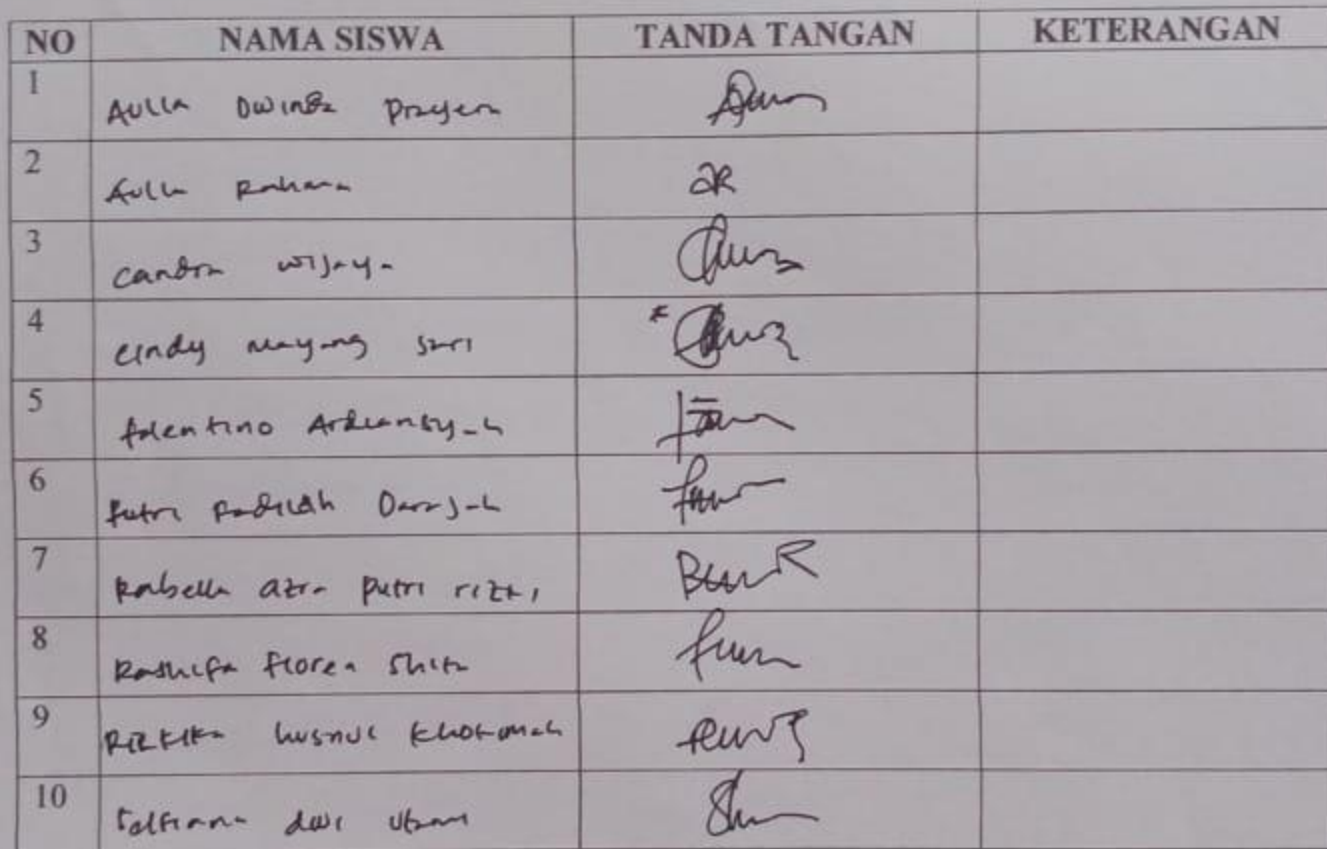 NO NAMA SISWA TANDA TANGAN KETERANGAN
1 Aulia Dwinda Prayera
2 Aulia Rahana
3 Candra Wijaya
4 Cindy Mayang Sari
5 Falentino Ardiansyah
6 Putri Fadilah Darajah
7 Rabella Azra Putri Rizki
8 Rashifa Florea Shita
9 Rizkika Husnul Khotimah
10 Salfiana Dwi Utami